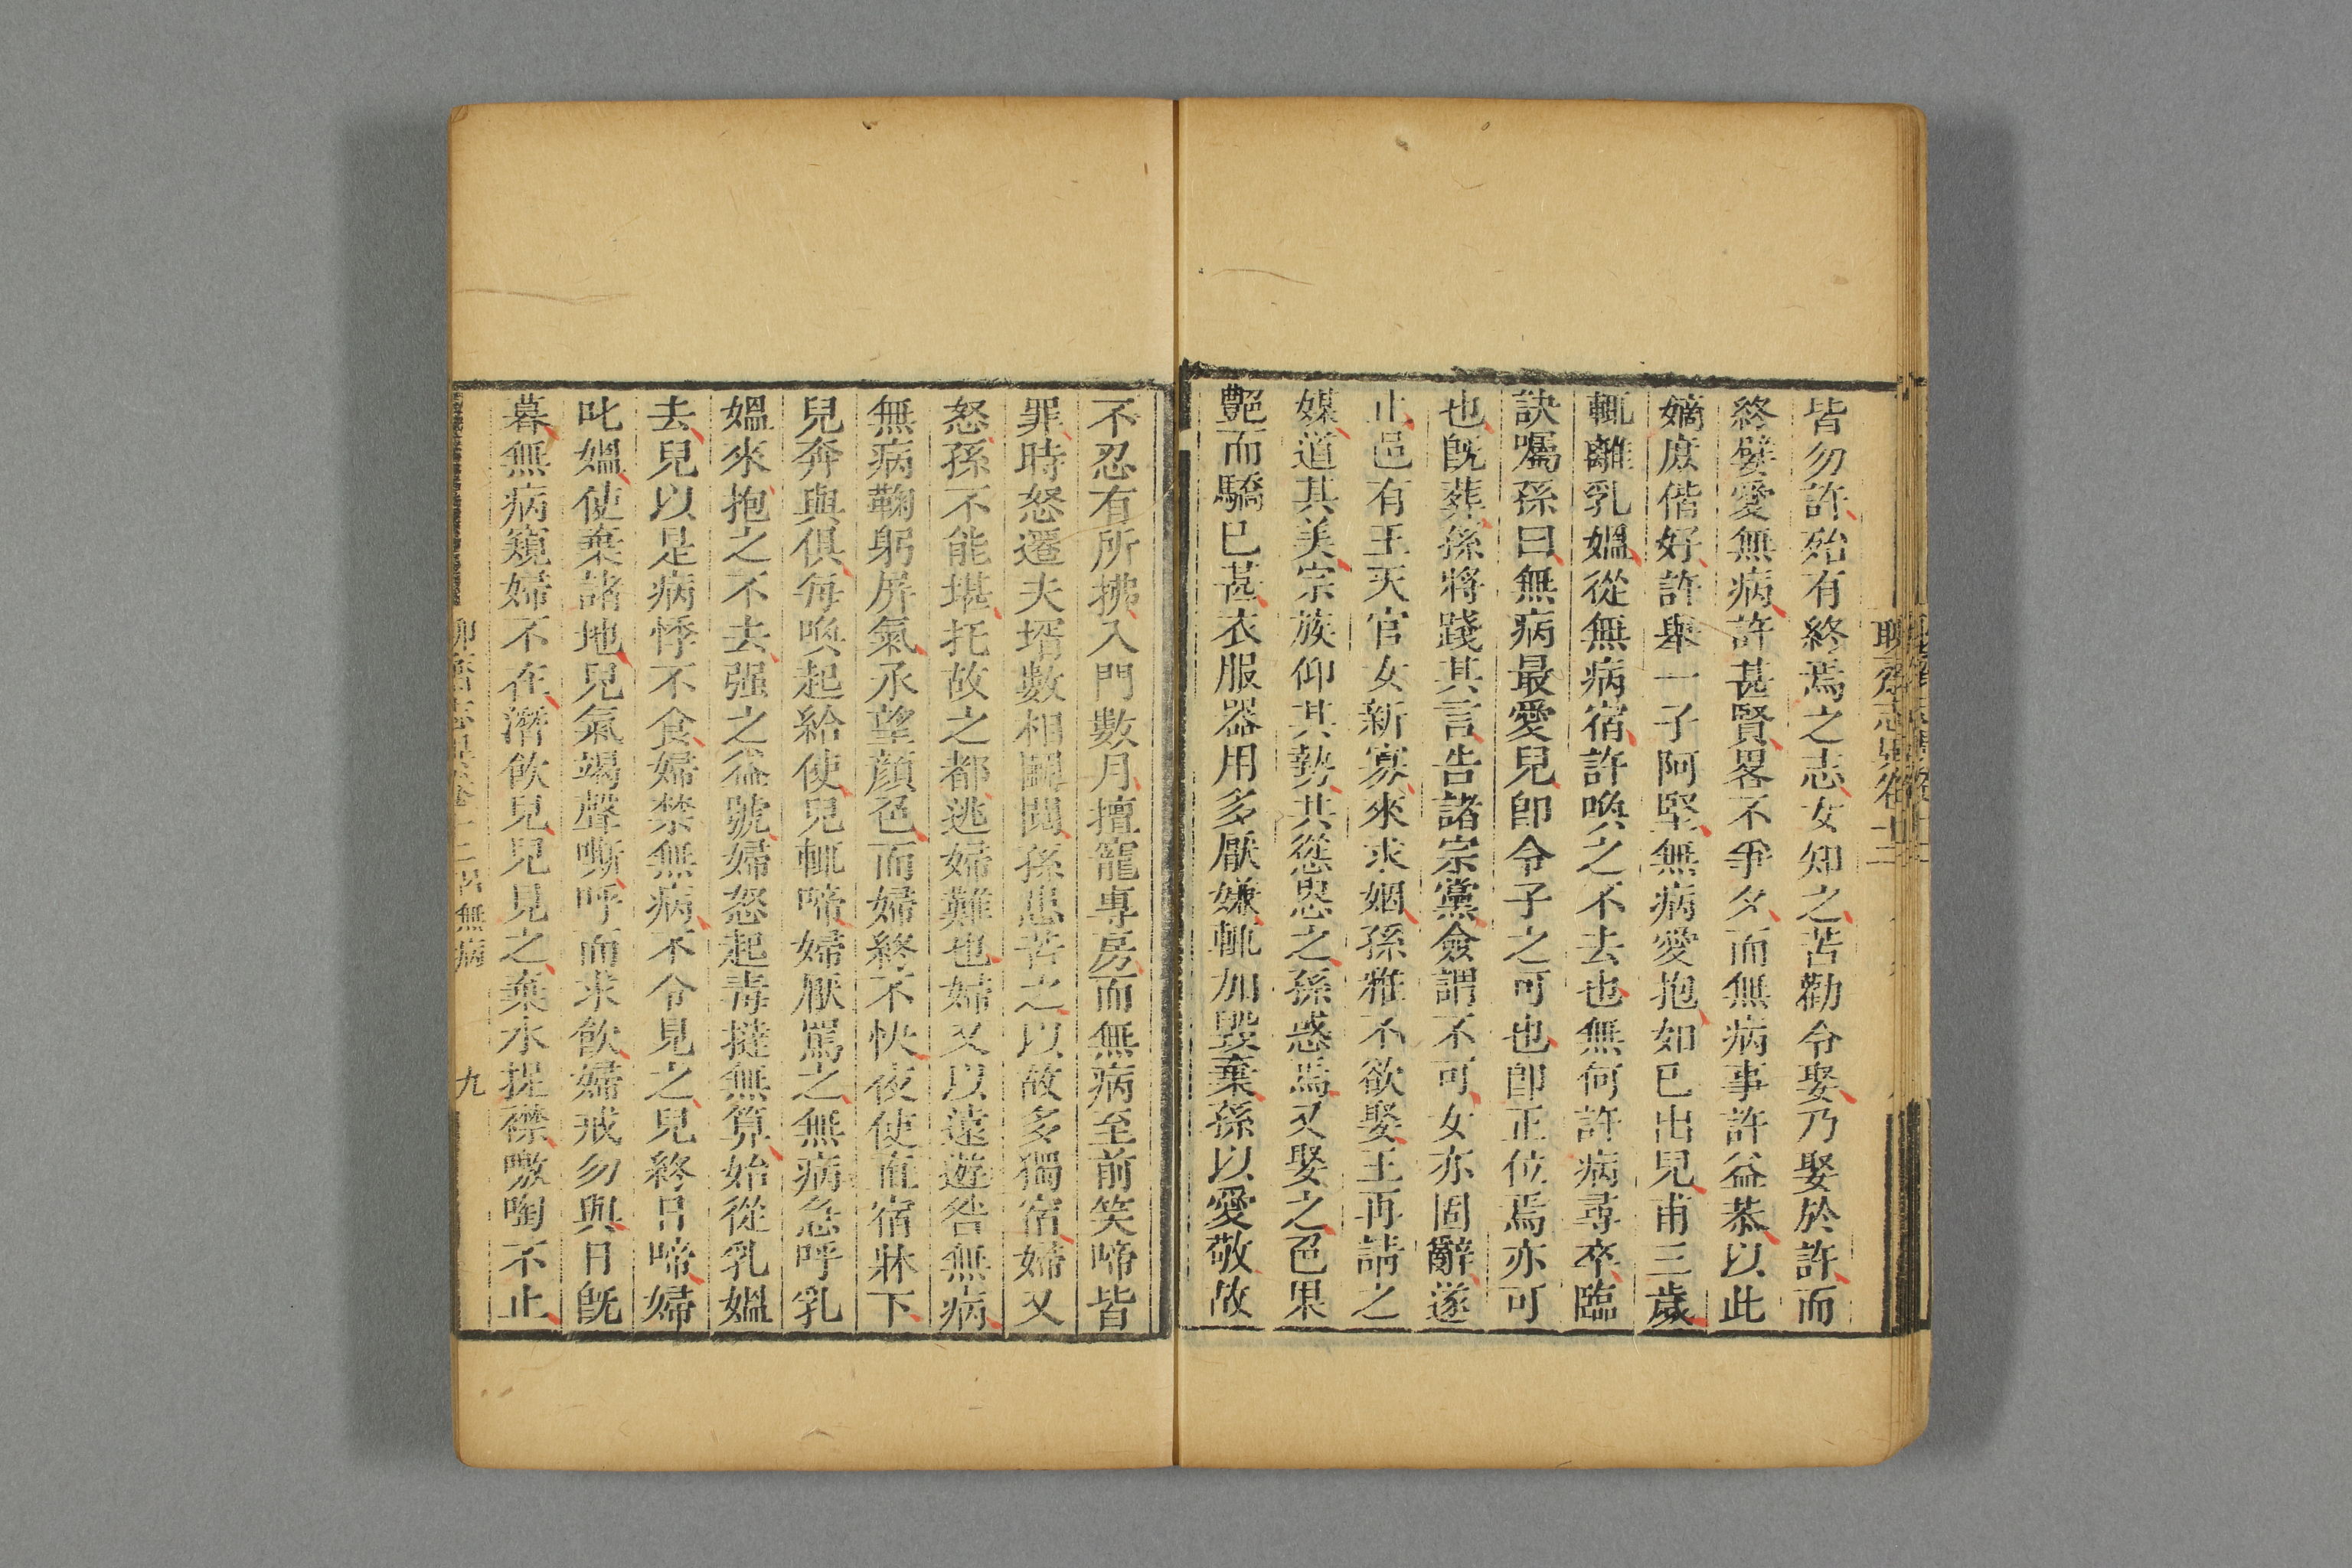 聊齋志異卷十二
皆勿許殆有終焉之志女知之苦勸令娶乃娶於許而
終嬖愛無病許甚賢畧不爭夕而無病事許益恭以此
嫡庶偕好許舉一子阿堅無病愛抱如已出兒甫三歲
輒離乳媼從無病宿許喚之不去也無何許病尋卒臨
訣囑孫曰無病最愛兒卽令子之可也卽正位焉亦可
也旣葬孫將踐其言告諸宗黨僉謂不可女亦固辭遂
止邑有王天官女新寡來求姻孫雅不欲娶王再請之
媒道其美宗族仰其勢共慫恿之孫惑焉又娶之色果
艷而驕已甚衣服器用多厭嫌輒加毀棄孫以愛敬故
不忍有所拂入門數月擅寵專房而無病至前笑啼皆
罪時怒遷夫壻數相鬭鬩孫患苦之以故多獨宿婦又
怒孫不能堪托故之都逃婦難也婦又以遠遊咎無病
無病鞠躬屏氣承望顏色而婦終不快夜使直宿牀下
兒奔與俱每喚起給使兒輒啼婦厭罵之無病急呼乳
媼來抱之不去强之益號婦怒起毒撻無算始從乳媼
去兒以是病悸不食婦禁無病不令見之兒終日啼婦
叱媼使棄諸地兒氣竭聲嘶呼而求飮婦戒勿與日旣
暮無病窺婦不在潛飮兒兒見之棄水捉襟嗷啕不止
聊齋志異卷十二 呂無病 九